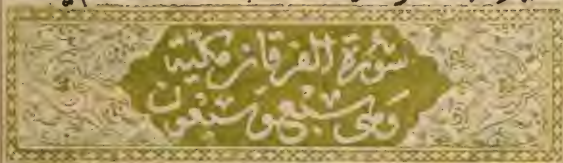 سُورَةُ الفُرقَانِ مَكِّيَّة
وَهِيَ سَبْعٌ وَسَبْعُون